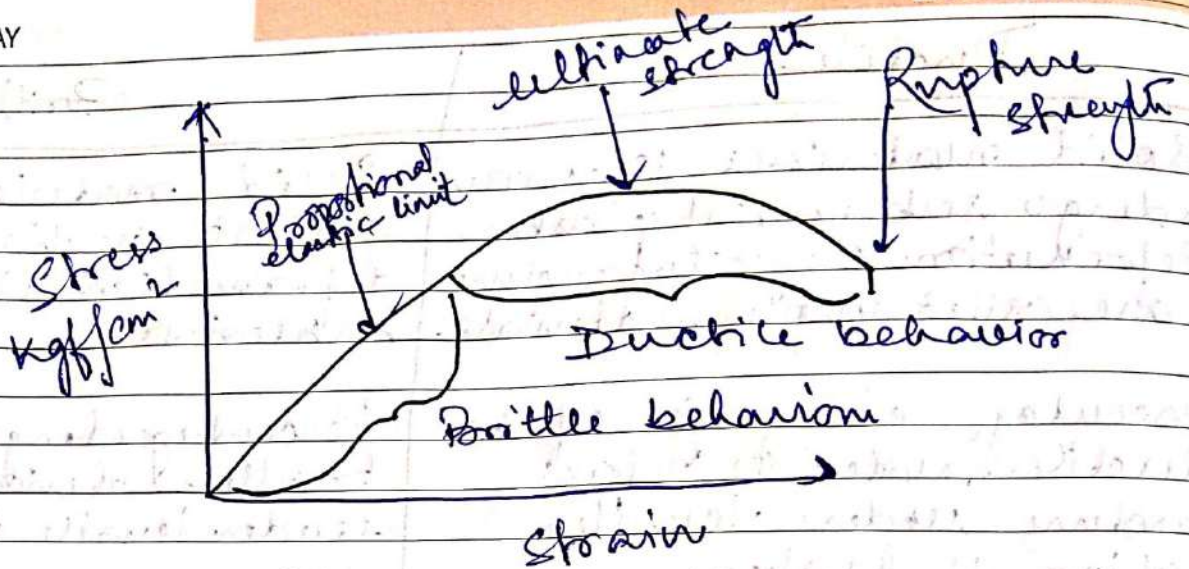 AY
Ultimate
strength
Rupture
strength
Proportional
elastic limit
Stress
kgf/cm²
Ductile behavior
Brittle behaviour
Strain